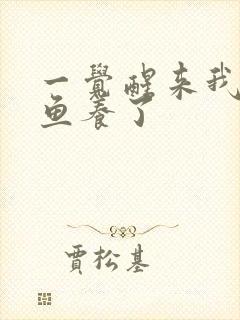 一覺醒来我
鱼养了
賈松基